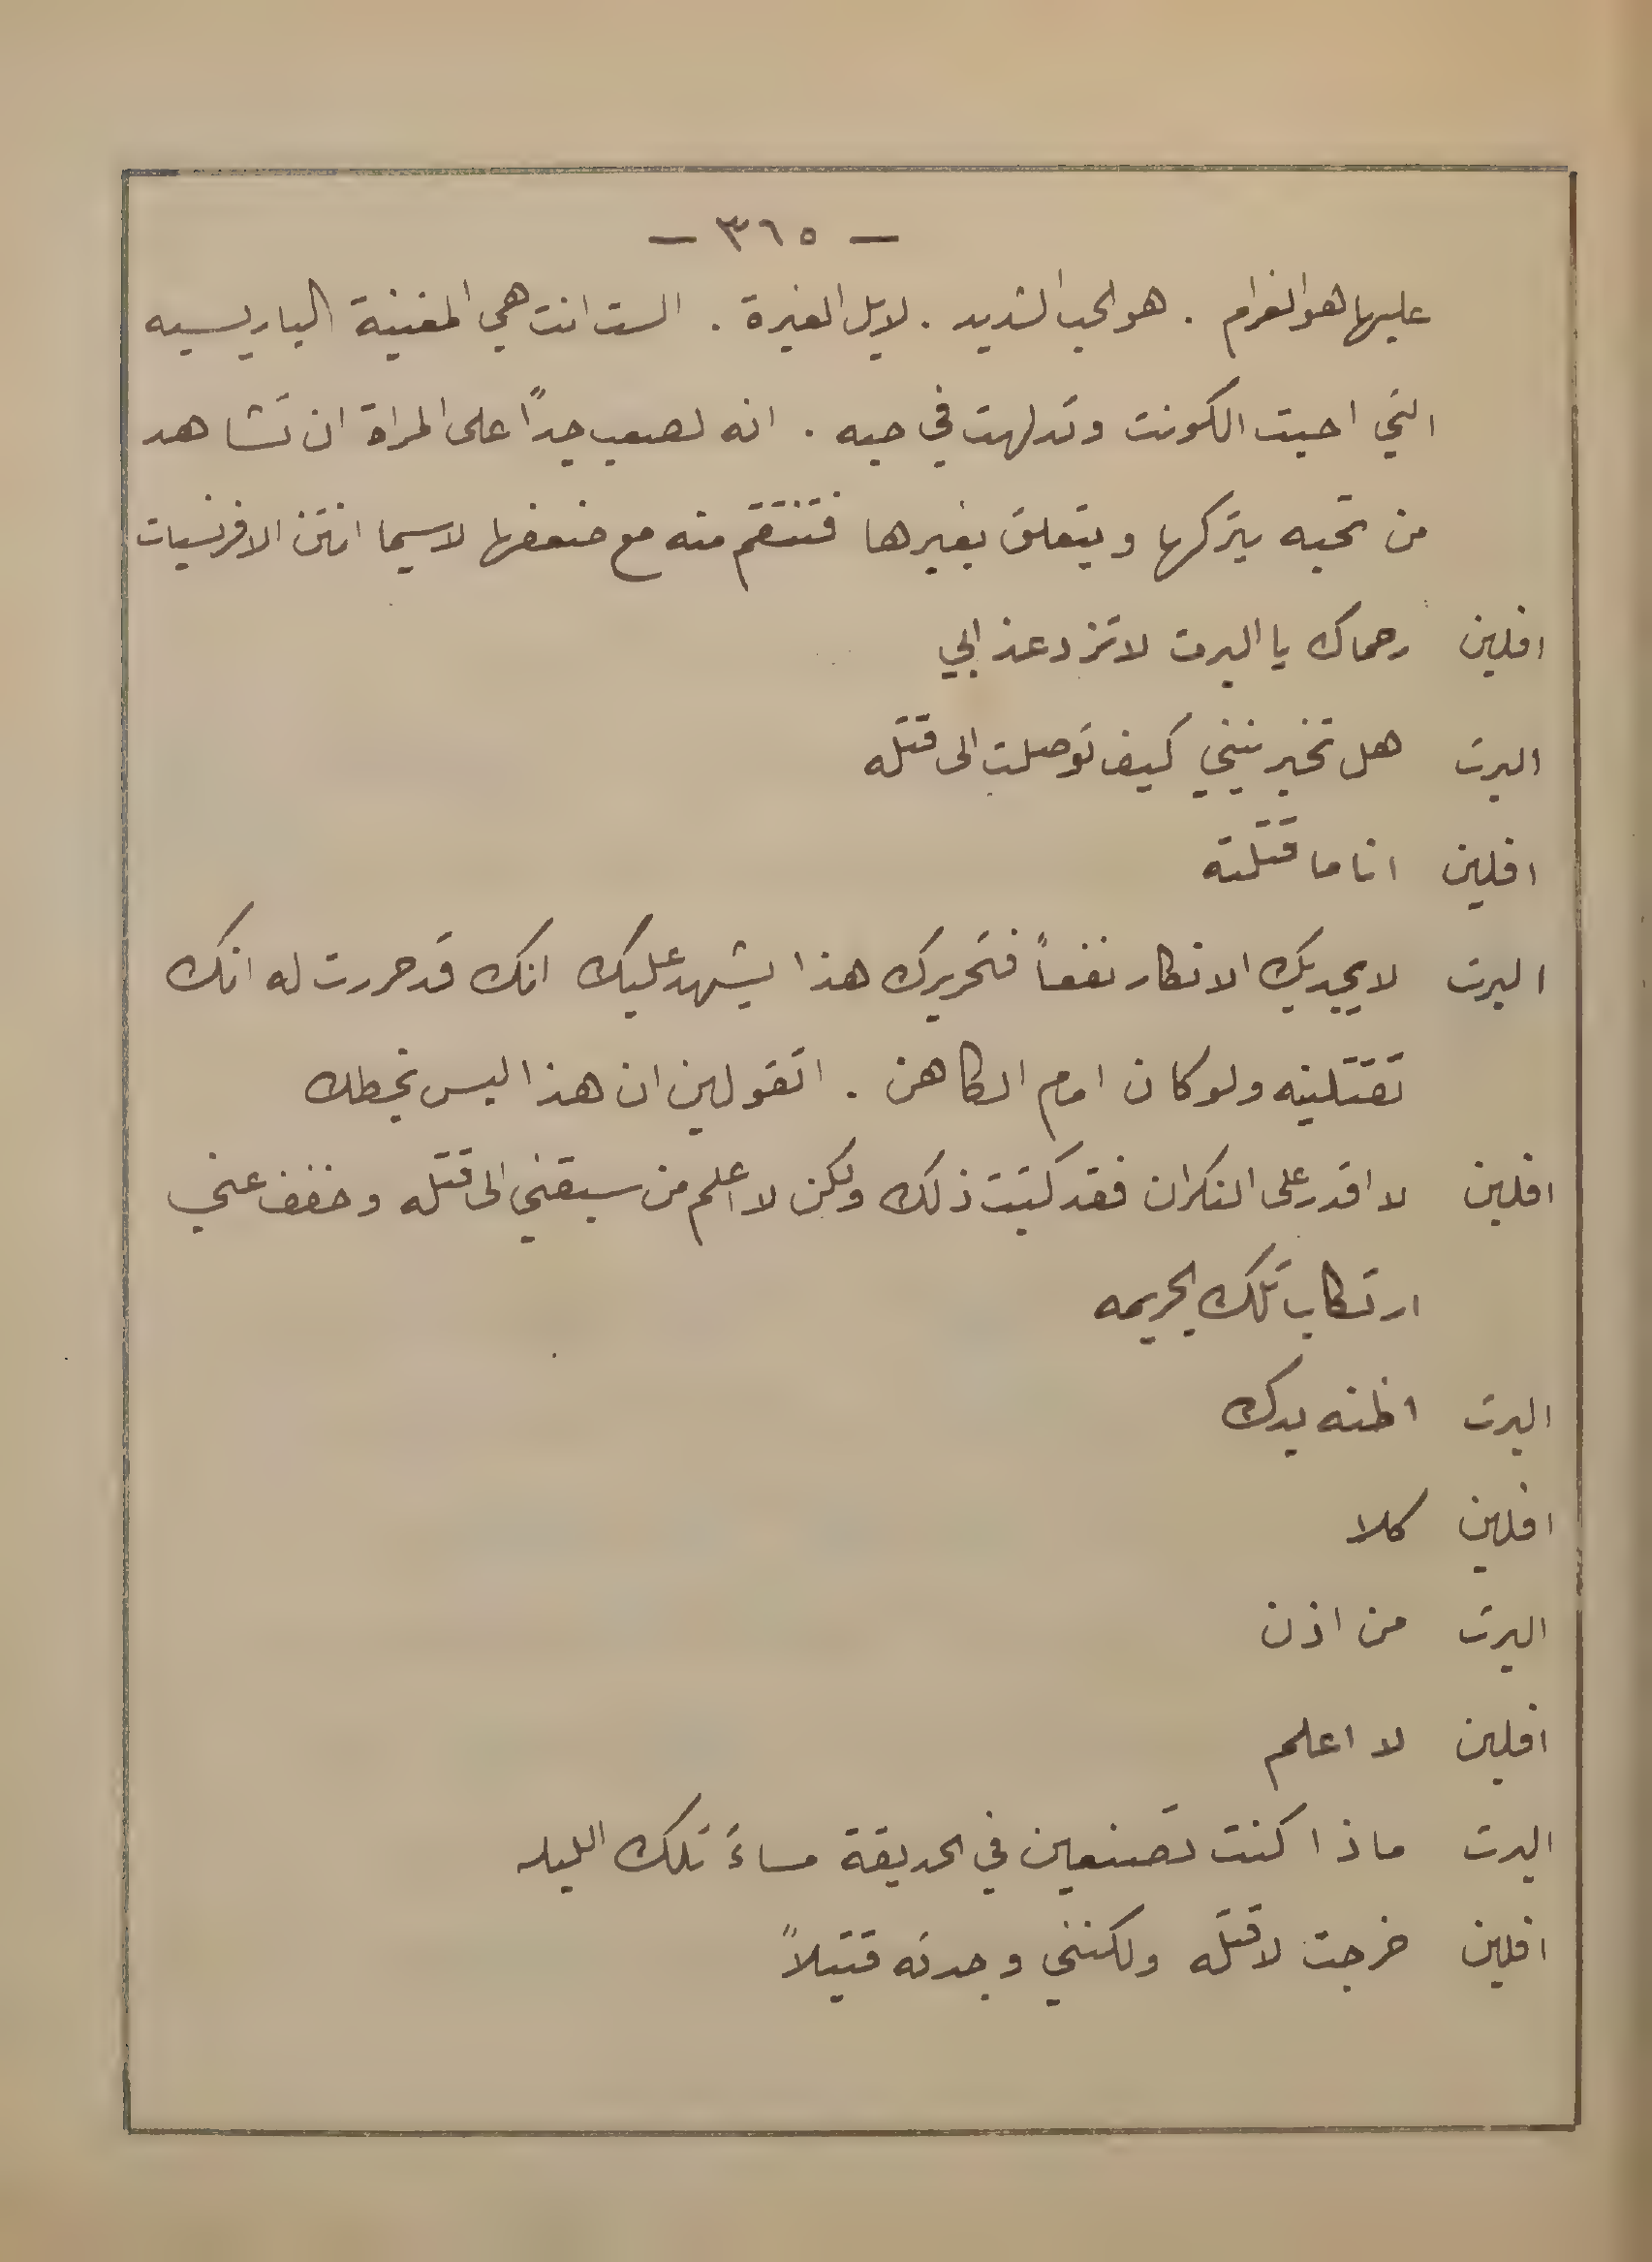 — ٣٦٥ —
عليها هو الغرام . هو الحب الشديد . لا بل الغيرة . الست انت هي المغنية الباريسيه
التي احبت الكونت وتدلهت في حبه . انه لصعب جداً على المراة ان تشاهد
من تحبه يتركها ويتعلق بغيرها فتنتقم منه مع ضعفها لاسيما انتن الافرنسيات
افلين رحماك يا البرت لا تزد عذابي
البرت هل تخبرينني كيف توصلت الى قتله
افلين انا ما قتلته
البرت لا يجديك الانكار نفعاً فتحريرك هذا يشهد عليك انك قد حررت له انك
تقتلينه ولو كان امام الكاهن . اتقولين ان هذا ليس بخطك
افلين لا اقدر على النكران فقد كتبت ذلك ولكن لا اعلم من سبقني الى قتله وخفف عني
ارتكاب تلك الجريمه
البرت اظنه يدك
افلين كلا
البرت من اذن
افلين لا اعلم
البرت ماذا كنت تصنعين في الحديقة مساءَ تلك الليله
افلين خرجت لاقتله ولكنني وجدته قتيلاً